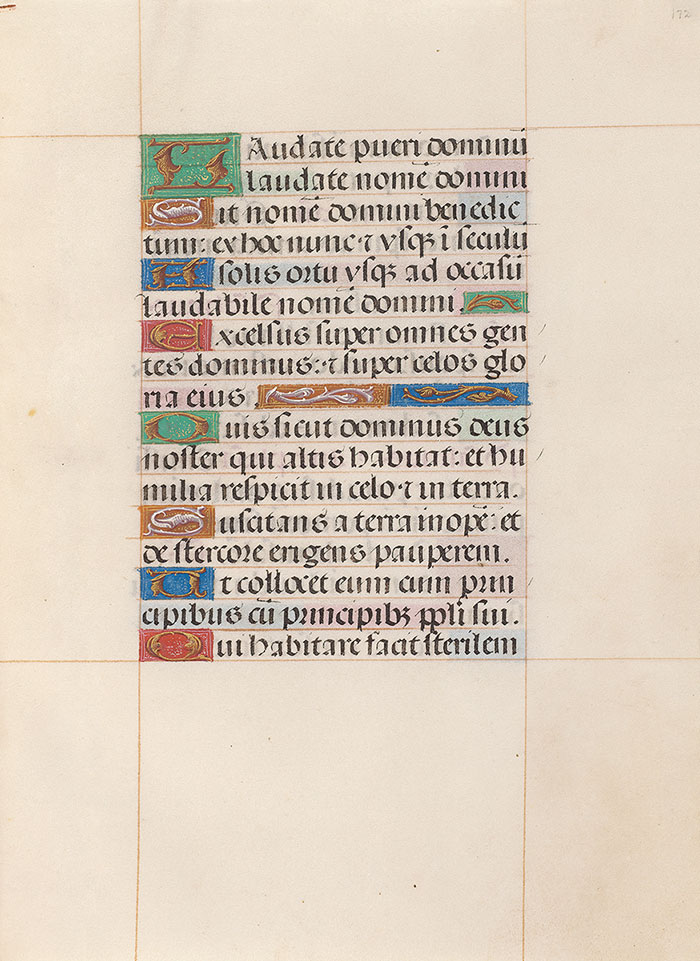 172
LAudate pueri dominū
laudate nomē domini
Sit nomē domini benedic
tum: ex hoc nunc ⁊ vsqꝫ ī seculū
A solis ortu vsqꝫ ad occasū
laudabile nomē domini.
Excelsus super omnes gen
tes dominus: ⁊ super celos glo
ria eius.
Quis sicut dominus deus
noster qui altis habitat: et hu
milia respicit in celo ⁊ in terra.
Suscitans a terra inopē: et
de stercore erigens pauperem.
Ut collocet eum cum prin
cipibus cū principibꝫ ppli sui.
Qui habitare facit sterilem